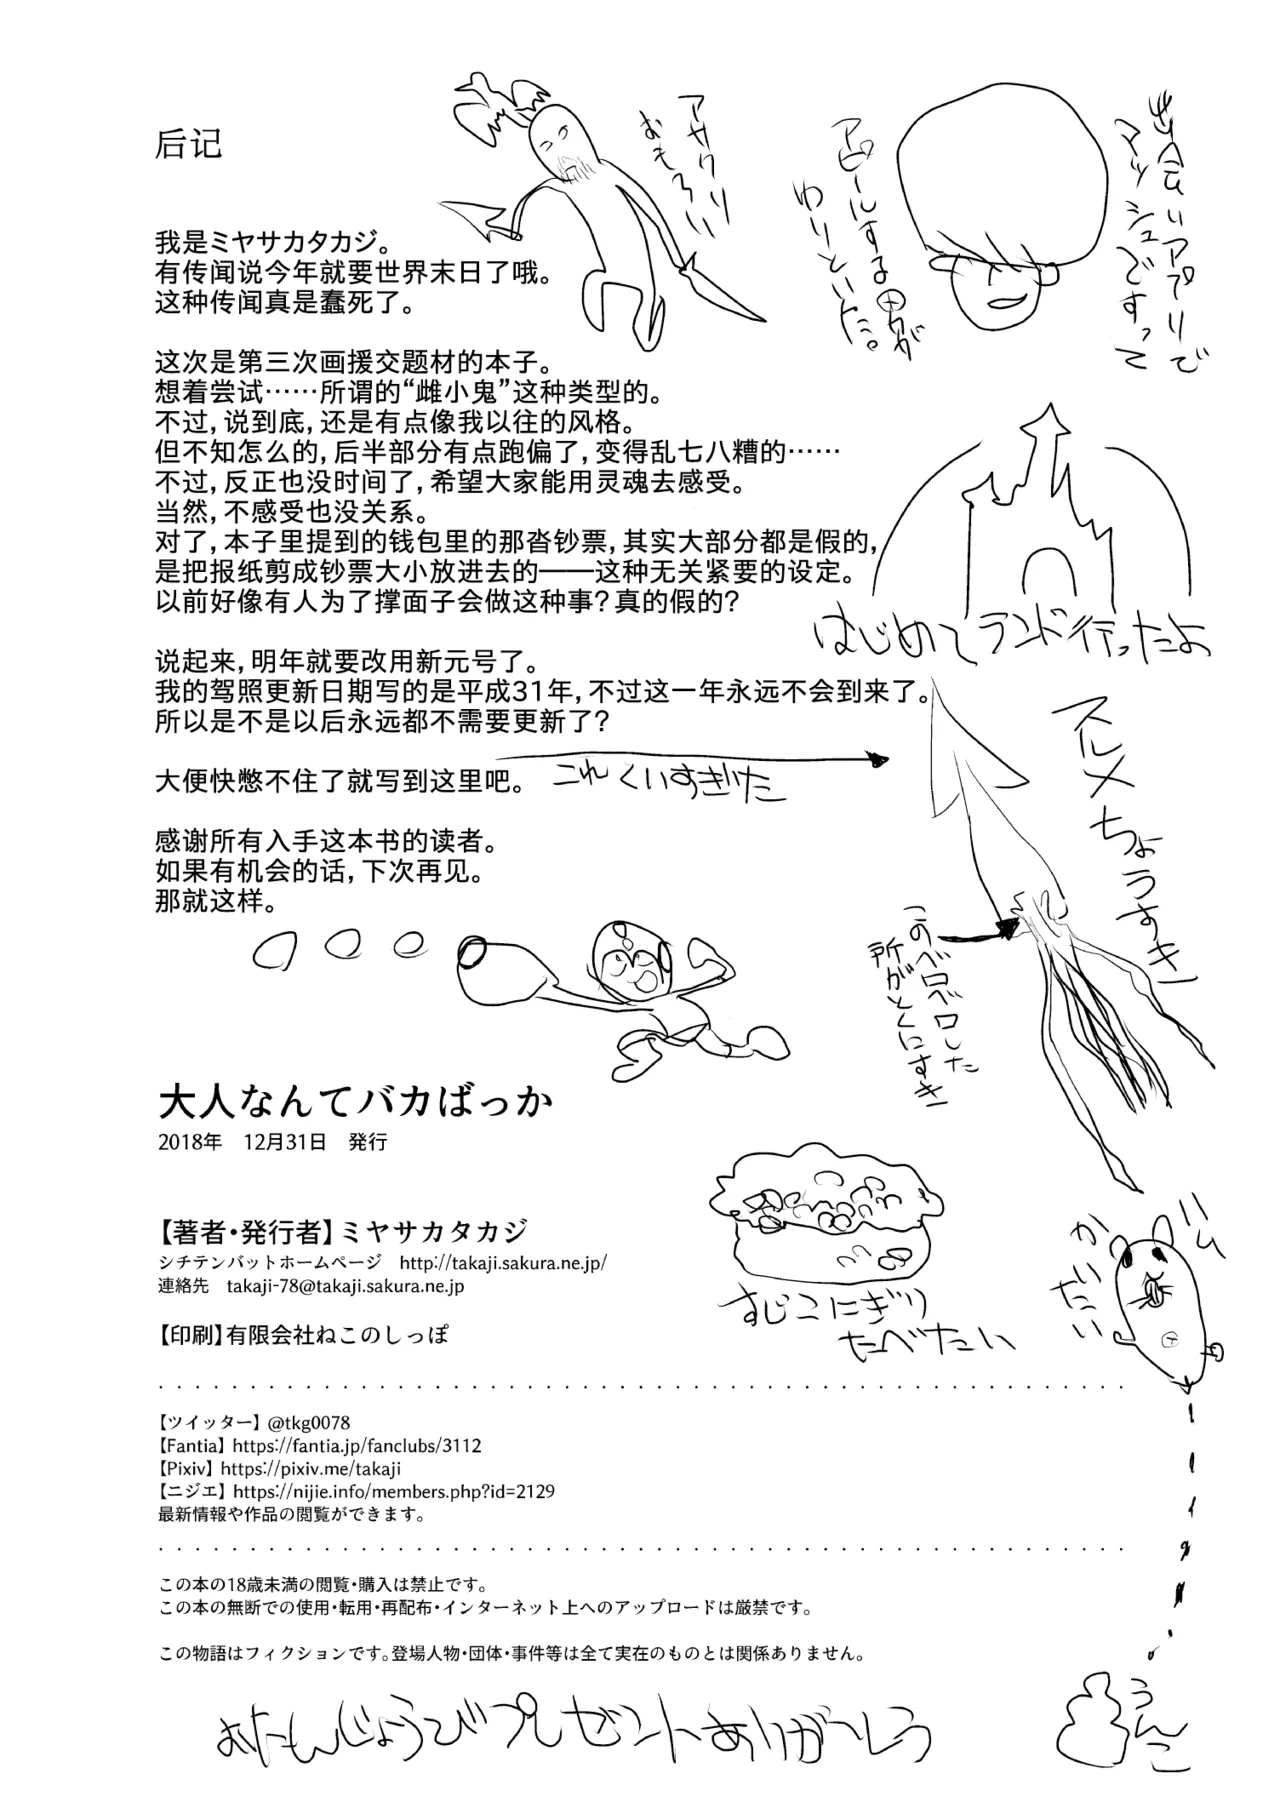 后记
我是ミヤサカタカジ。
有传闻说今年就要世界末日了哦。
这种传闻真是蠢死了。
这次是第三次画援交题材的本子。
想着尝试……所谓的“雌小鬼”这种类型的。
不过,说到底,还是有点像我以往的风格。
但不知怎么的,后半部分有点跑偏了,变得乱七八糟的……
不过,反正也没时间了,希望大家能用灵魂去感受。
当然,不感受也没关系。
对了,本子里提到的钱包里的那沓钞票,其实大部分都是假的,
是把报纸剪成钞票大小放进去的——这种无关紧要的设定。
以前好像有人为了撑面子会做这种事?真的假的?
说起来,明年就要改用新元号了。
我的驾照更新日期写的是平成31年,不过这一年永远不会到来了。
所以是不是以后永远都不需要更新了?
大便快憋不住了就写到这里吧。
感谢所有入手这本书的读者。
如果有机会的话,下次再见。
那就这样。
アサクリ
おもろい
出会いアプリで
マッシュですって
アピールする男が
わりといた。
はじめてランド行ったよ
これくいすぎた
スルメちょうすき
このベロベロした
所がとくにすき
すじこにぎり
たべたい
ハム
かいたい
うんこ
大人なんてバカばっか
2018年　12月31日　発行
【著者・発行者】ミヤサカタカジ
シチテンバットホームページ　http://takaji.sakura.ne.jp/
連絡先　takaji-78@takaji.sakura.ne.jp
【印刷】有限会社ねこのしっぽ
【ツイッター】@tkg0078
【Fantia】https://fantia.jp/fanclubs/3112
【Pixiv】https://pixiv.me/takaji
【ニジエ】https://nijie.info/members.php?id=2129
最新情報や作品の閲覧ができます。
この本の18歳未満の閲覧・購入は禁止です。
この本の無断での使用・転用・再配布・インターネット上へのアップロードは厳禁です。
この物語はフィクションです。登場人物・団体・事件等は全て実在のものとは関係ありません。
おたんじょうびプレゼントありがとう